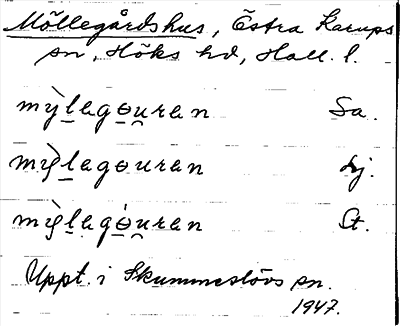 Möllegårdshus, Östra Karups
sn, Höks hd, Hall. l.
mỳlagɵuran Sa.
mỳlagɵuran Lj.
mỳlagɵuran St.
Uppt. i Skummeslövs sn.
1947.